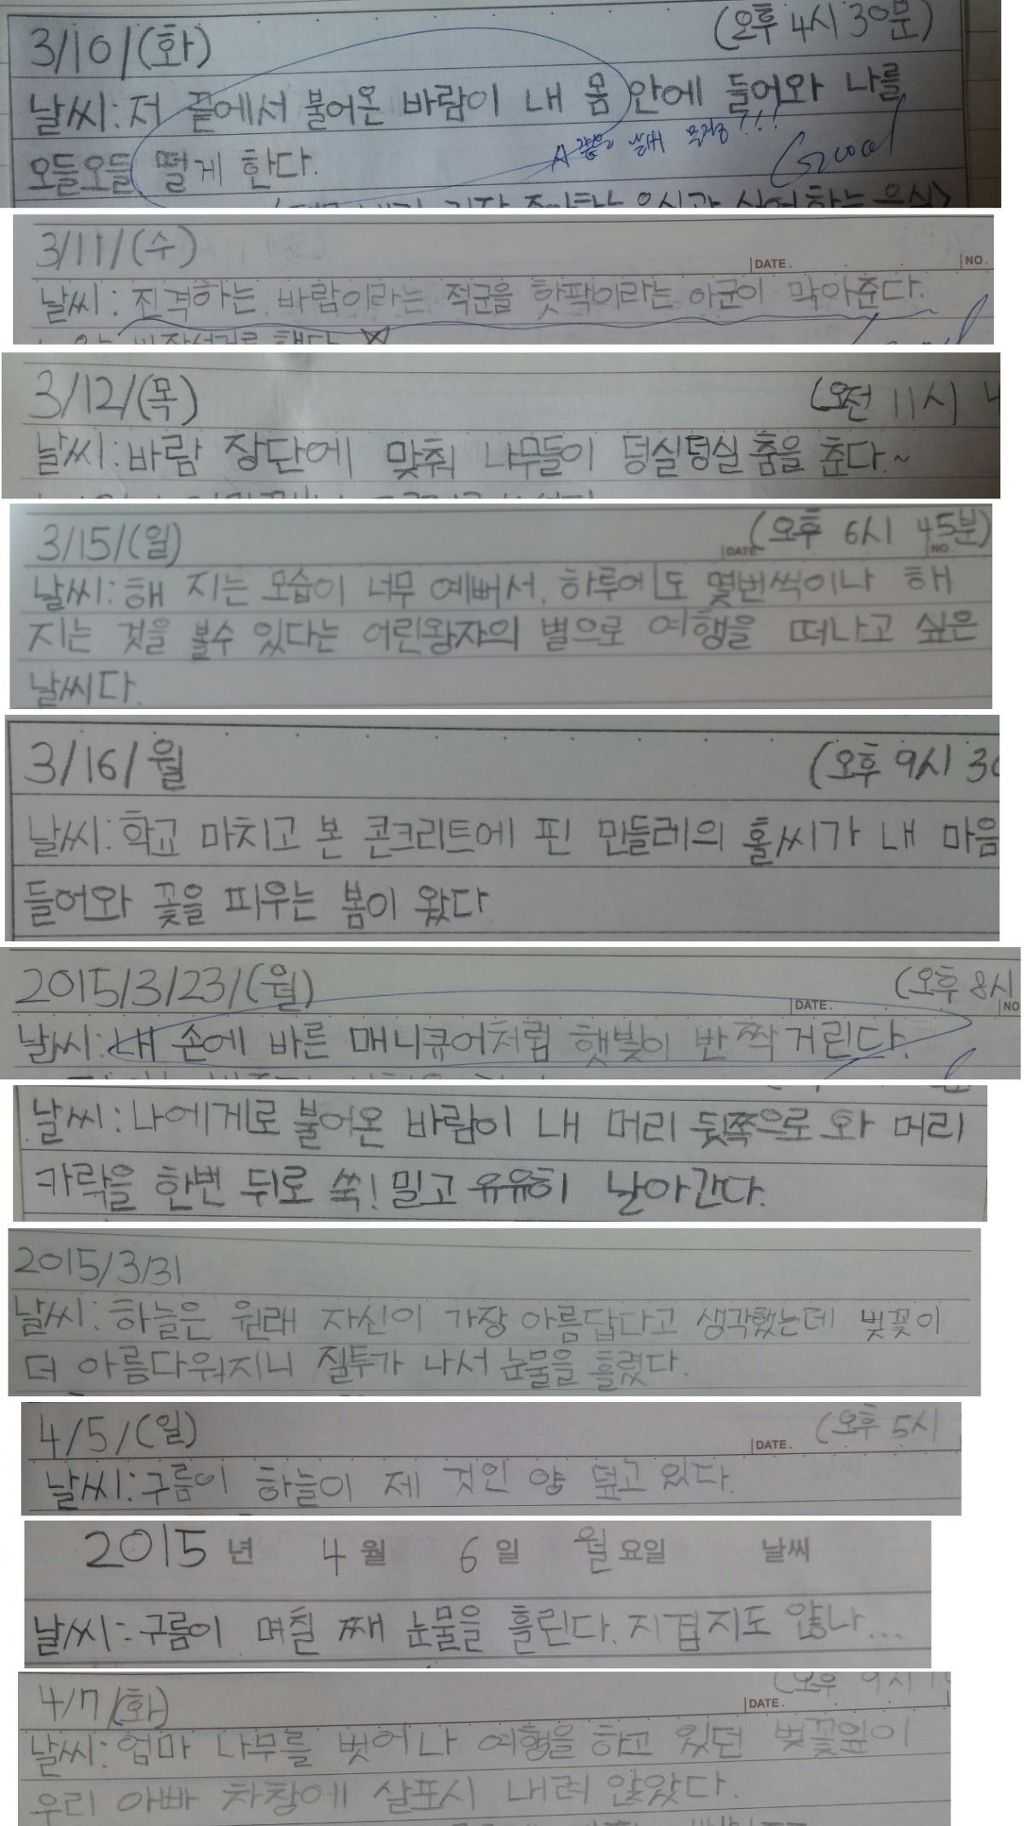 3/10/(화) (오후 4시 30분)
날씨: 저 끝에서 불어온 바람이 내 몸 안에 들어와 나를
오들오들 떨게 한다.
날씨 Good
3/11/(수)
DATE. NO.
날씨: 진격하는 바람이라는 적군을 핫팩이라는 아군이 막아준다.
3/12/(목) (오전 11시
날씨: 바람 장단에 맞춰 나무들이 덩실덩실 춤을 춘다.~
3/15/(일) (오후 6시 45분)
DATE NO.
날씨: 해 지는 모습이 너무 예뻐서, 하루에도 몇번씩이나 해
지는 것을 볼수 있다는 어린왕자의 별으로 여행을 떠나고 싶은
날씨다.
3/16/월 (오후 9시 30
날씨: 학교 마치고 본 콘크리트에 핀 민들레의 홀씨가 내 마음
들어와 꽃을 피우는 봄이 왔다
2015/3/23/(월) (오후 8시
DATE. NO
날씨: 내 손에 바른 매니큐어처럼 햇빛이 반짝거린다.
날씨: 나에게로 불어온 바람이 내 머리 뒷쪽으로 와 머리
카락을 한번 뒤로 쑥! 밀고 유유히 날아간다.
2015/3/31
날씨: 하늘은 원래 자신이 가장 아름답다고 생각했는데 벚꽃이
더 아름다워지니 질투가 나서 눈물을 흘렸다.
4/5/(일) (오후 5시
DATE.
날씨: 구름이 하늘이 제 것인 양 덮고 있다.
2015년 4월 6일 월요일 날씨
날씨: 구름이 며칠 째 눈물을 흘린다. 지겹지도 않나...
4/7/(화) (오후 9시
DATE.
날씨: 엄마 나무를 벗어나 여행을 하고 있던 벚꽃잎이
우리 아빠 차창에 살포시 내려 앉았다.